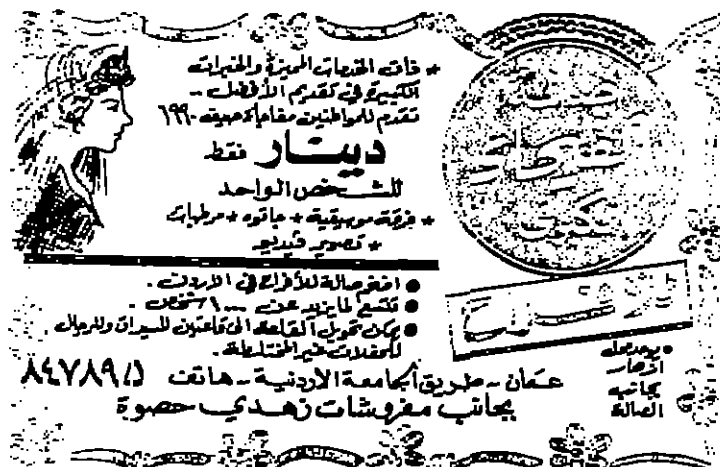 * ذات الخدمات المميزة والخبرات
الكثيرة في تقديم الأفضل --
تقدم للمواطنين مفاجأة صيف ١٩٩٠
دينار فقط
للشخص الواحد
* فرقة موسيقية * جاتوه * مرطبات
* تصوير فيديو
● افخم صالة للأفراح في الاردن .
● تتسع لما يزيد عن ١٠٠٠ شخص .
● يمكن تحويل القاعة الى قاعتين للسيدات وللرجال
للحفلات غير المختلطة .
● يوجد محل
ازهار
بجانب
الصالة
عمان - طريق الجامعة الاردنية - هاتف ٨٤٧٨٩
بجانب مفروشات زهدي حصوة